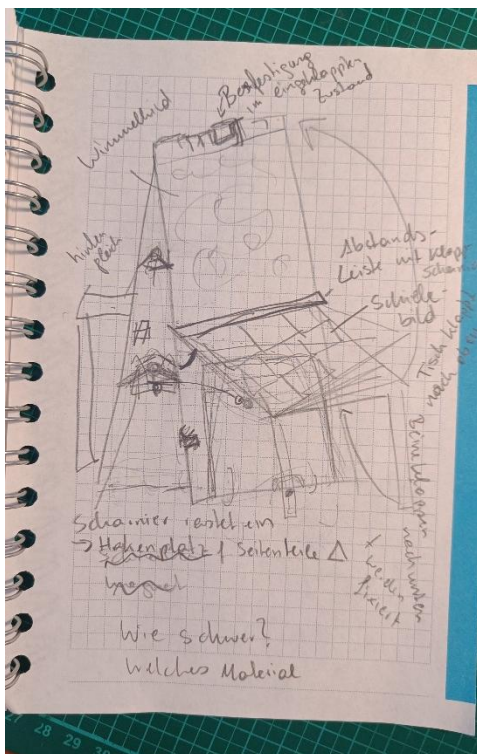 Befestigung
im eingeklappten
Zustand
Wimmelbild
hinten
gleich
Abstands-
Leiste mit Klapp
Scharnier
Schiebe-
bild
Tisch klappt
nach oben
Beine klappen
nach unten
+ werden
fixiert
Scharnier rastet ein
→ Hakenplatz f Seitenteile Δ
Wie schwer?
Welches Material
27 28 29